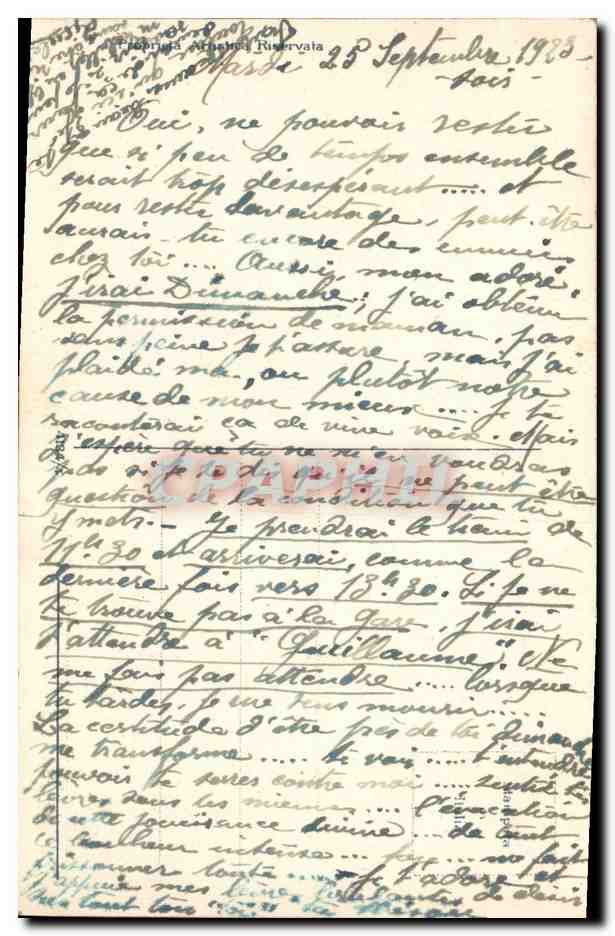 Proprietà Artistica Riservata
Mardi 25 Septembre 1923
soir
Oui, ne pouvoir rester
que si peu de temps ensemble
serait trop désespérant..... et
pour rester davantage, peut-être
aurais-tu encore des ennuis
chez toi.... Aussi, mon adoré,
j'irai Dimanche; j'ai obtenu
la permission de maman, pas
sans peine je t'assure, mais j'ai
plaidé ma, ou plutôt notre
cause de mon mieux.... Je te
raconterai ça de vive voix. Mais
j'espère que tu ne m'en voudras
pas si je te dis qu'il ne peut être
question de la condition que tu
y mets. - Je prendrai le train de
11h30 et arriverai, comme la
dernière fois vers 13h30. Si je ne
te trouve pas à la gare, j'irai
t'attendre à "Guillaume". Ne
me fais pas attendre..... lorsque
tu tardes, je me sens mourir.....
La certitude d'être près de toi Dimanche
me transforme..... te voir.... t'entendre
pouvoir te serrer contre moi.... sentir tes
lèvres sous les miennes.... l'évocation
de cette jouissance divine.... de tout
ce bonheur intense.... me fait
frissonner toute..... Je t'adore et
j'appuie mes lèvres de désir
CPAPHIL